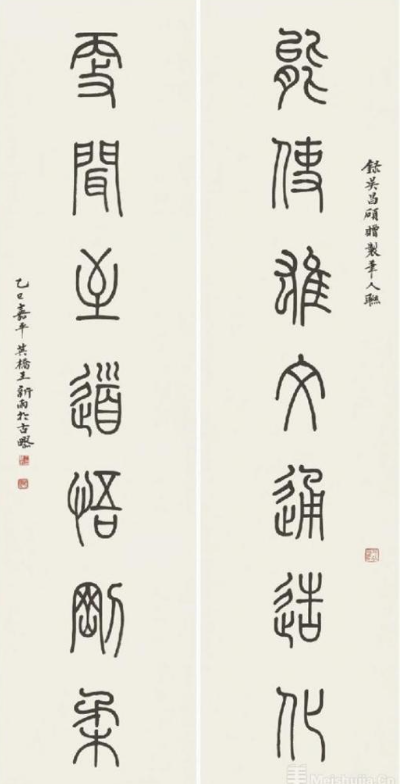 錄吳昌碩贈製筆人聯
能使雄文通造化
聞至道悟剛柔
乙巳嘉平英橋王新雨於古甌
Meishujia.Cn